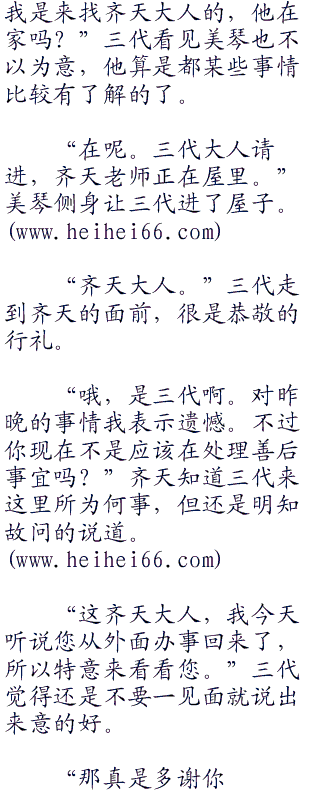 我是来找齐天大人的，他在
家吗？”三代看见美琴也不
以为意，他算是都某些事情
比较有了解的了。
“在呢。三代大人请
进，齐天老师正在屋里。”
美琴侧身让三代进了屋子。
(www.heihei66.com)
“齐天大人。”三代走
到齐天的面前，很是恭敬的
行礼。
“哦，是三代啊。对昨
晚的事情我表示遗憾。不过
你现在不是应该在处理善后
事宜吗？”齐天知道三代来
这里所为何事，但还是明知
故问的说道。
(www.heihei66.com)
“这齐天大人，我今天
听说您从外面办事回来了，
所以特意来看看您。”三代
觉得还是不要一见面就说出
来意的好。
“那真是多谢你